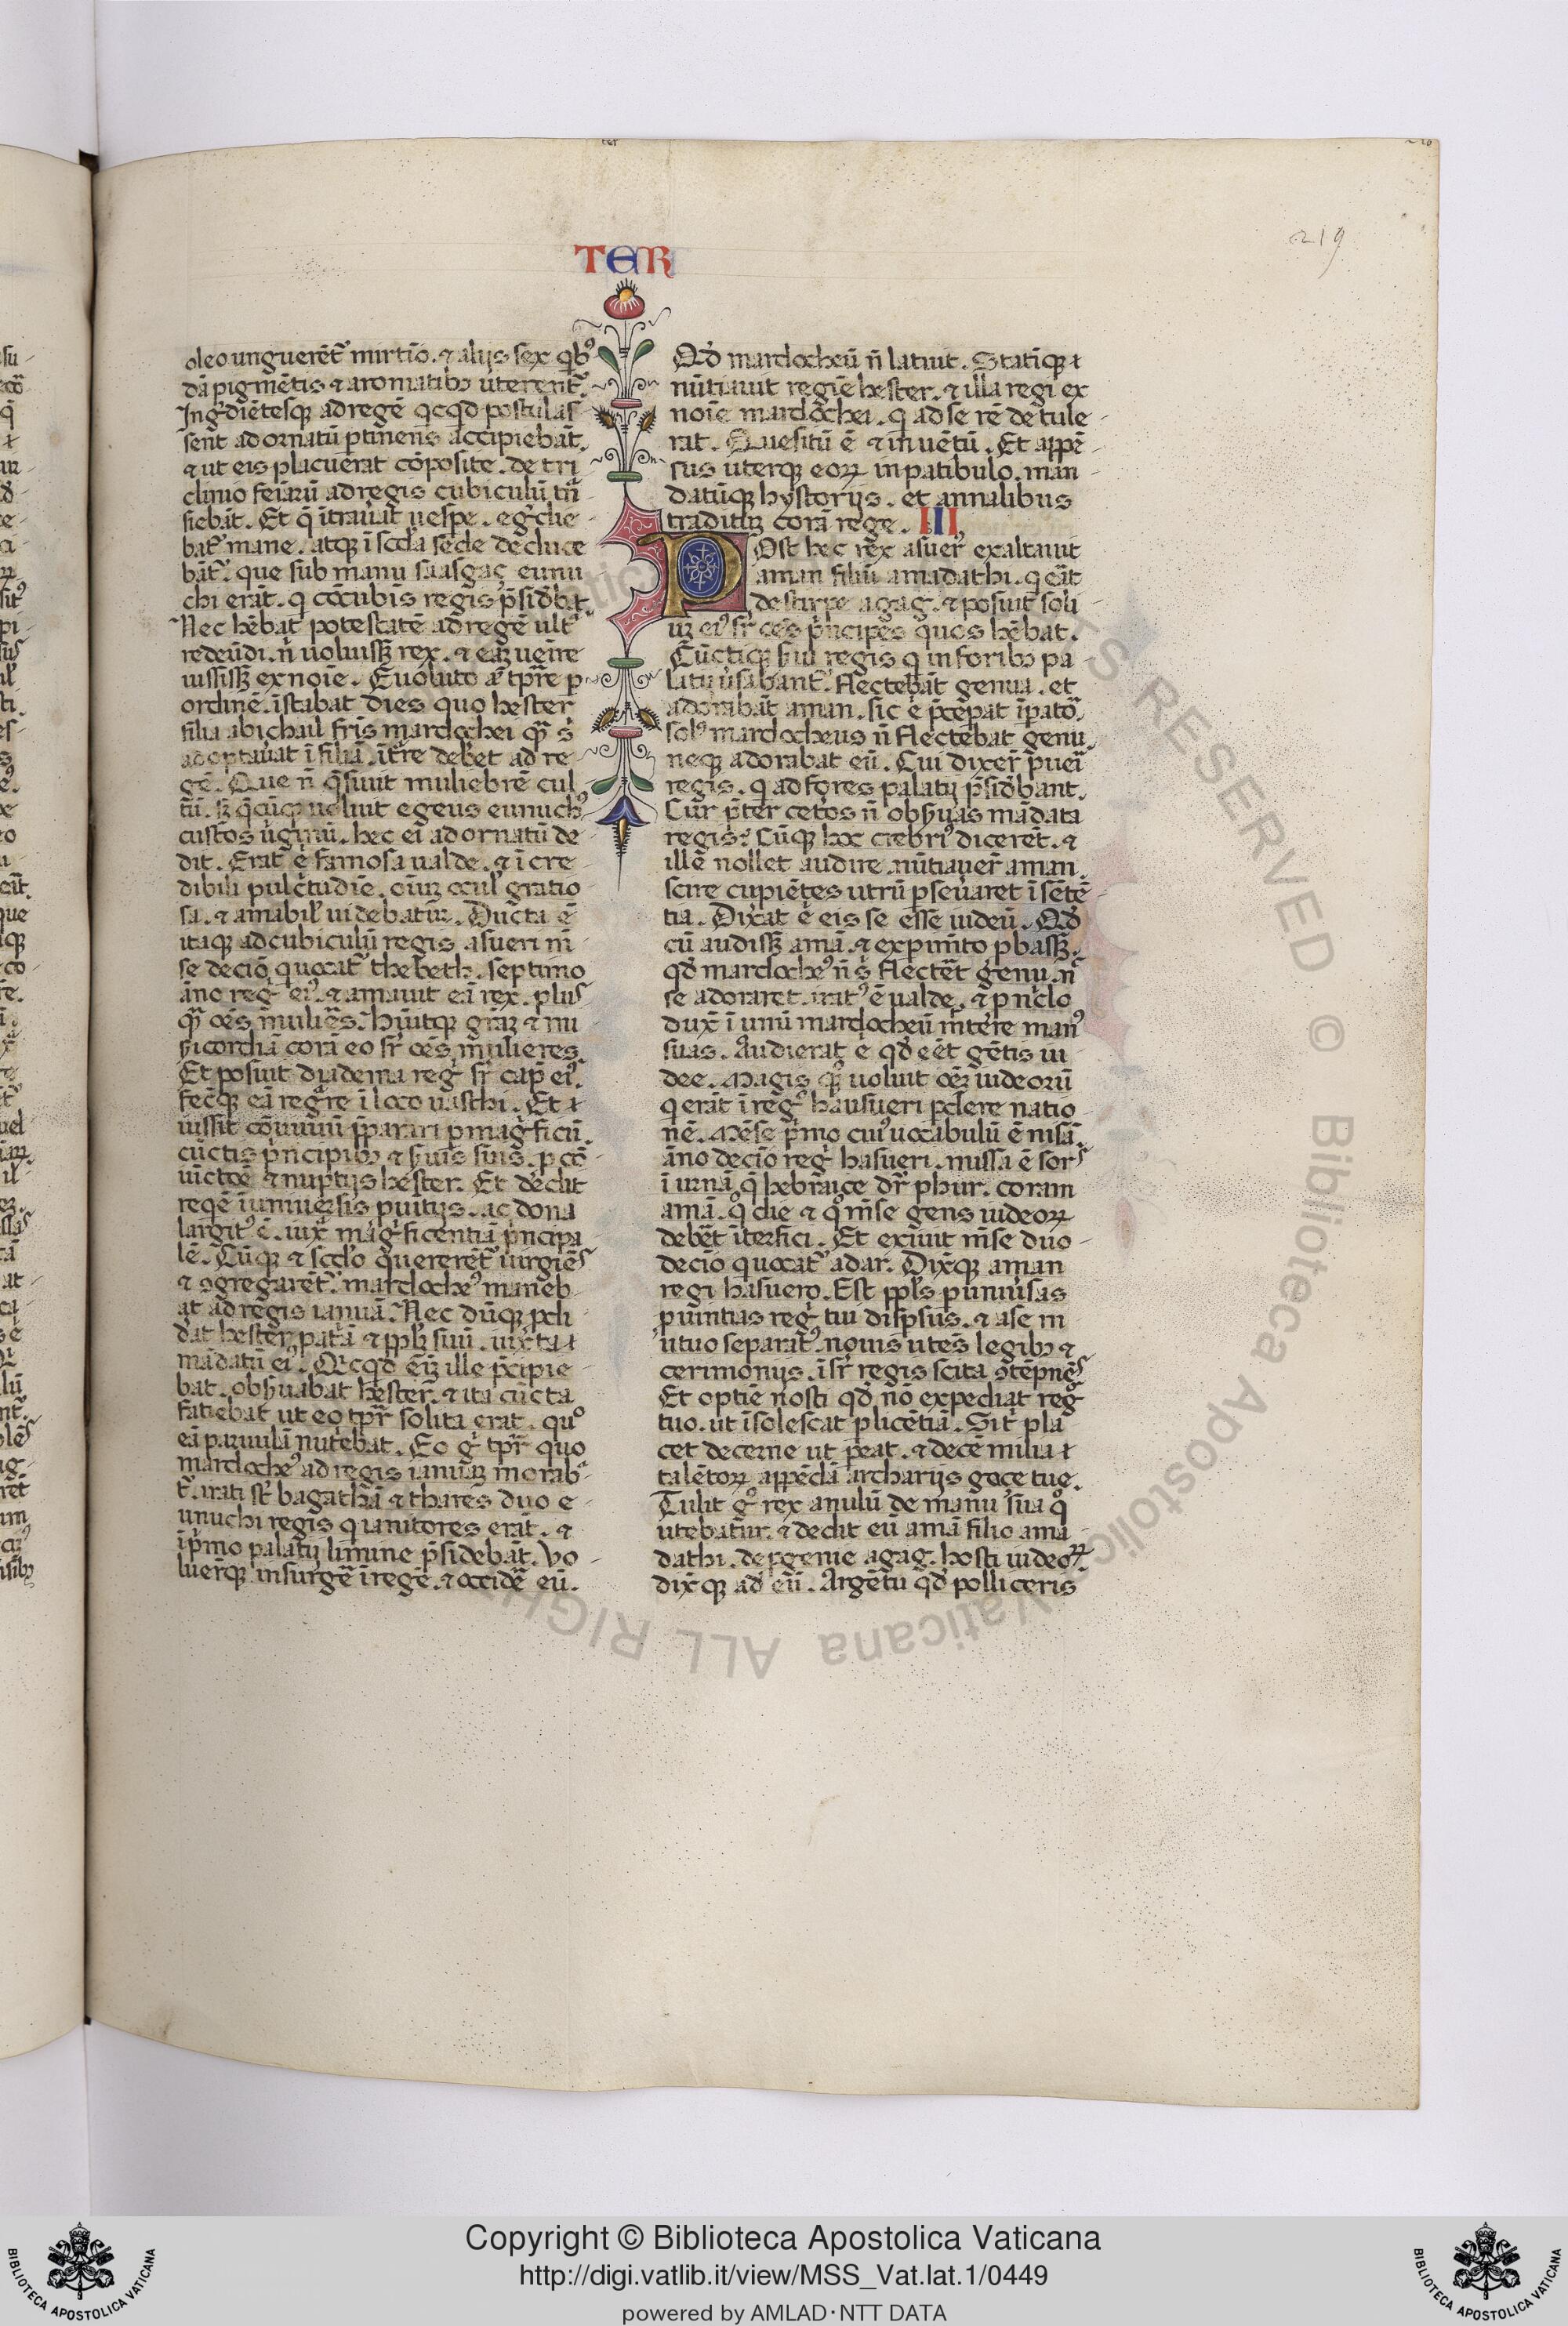 TER
219
oleo unguerēt᷑ mirtīo. ⁊ alijs sex qb᷒
dā pigmētis ⁊ aromatibꝫ uterent᷑.
Ingͥdiētesqꝫ ad regē qcqd postulas
sent ad ornatū ꝑtinens accipiebāt.
⁊ ut eis placuerat cōposite. de tri
clinio feīarū ad regis cubiculū tn̄
siebāt. Et q̄ ītrauat uespe. egͥdie
bat᷑ mane. atqꝫ ī scda sede deduce
bāt᷑. que sub manu saasgaç eunu
chi erāt. q cōcubis regis p̄sidebat.
Nec hēbat potestatē ad regē ult᷒
redeūdi. n̄ uoluissꝫ rex. ⁊ eāꝫ uenire
iussissꝫ ex noīe. Euoluto at̄ tpr̄e p
ordinē. īstabat dies quo hester
filia abichail frīs mardochei qᷓꝫ s
adoptauat ī filiā. īt᷑re deb̄et ad re
gē. Que n̄ q̄siuit muliebrē cul
tū. sꝫ q̄cūqꝫ uoluit egeus eunuch᷒
custos ūginū. hec ei ad ornatū de
dit. Erat e᷑ famosa ualde. ⁊ ī cre
dibili pulcͥtudīe. oīuꝫ ocul᷑ gratio
sa. ⁊ amabil᷑ uidebatur. Ducta ē
itaqꝫ ad cubiculū regis asueri m̄
se decīo quocat᷑ thebeth. septimo
āno reg᷑ ei᷒. ⁊ amauit eā rex. plus
qᷓꝫ oēs mulieres. hūitqꝫ gr̄aꝫ ⁊ mi
s̄icordiā corā eo sr̄ oēs mulieres.
Et posuit dyadema reg᷑ sr̄ cap̄ ei᷒.
fecͥqꝫ eā regͣre ī loco uasthi. Et
iussit cōuiuiū p̄parari ꝑmagͥficū.
cūctis pͥncipibꝫ ⁊ s̄uis suis. ꝑ cō
uictōe ⁊ nuptijs hester. Et dedit
reqē ī uniuersis ꝓuītijs. ac dona
largit᷒ ē. iuxͣ magͥficentiā pͥncipa
lē. Cūqꝫ ⁊ scd̄o quererēt᷑ uirgīes
⁊ ꝯgregarēt᷑. mardoche᷒ maneb
at ad regis ianuā. Nec dūqꝫ ꝓdi
dat hester pat̄ā ⁊ ppl̄m suū. iuxta
mādatū ei᷒. Qcqd eīꝫ ille p̄cipie
bat. obs̄uabat hester. ⁊ ita cūcta
fatiebat ut eo tpr̄e solita erat. quͦ
eā paruulā nutͥebat. Eo gͥ tpr̄e quo
mardoche᷒ ad regis ianuāꝫ morab
t᷑. irati st̄ bagathā ⁊ thares duo e
unuchi regis q ianitores erāt. ⁊
ī pͥmo palatij limine p̄sidebāt. Vo
luerq̄ꝫ insurgē ī regē. ⁊ occidē eū.
Qd̄ mardocheū n̄ latuit. Statīqꝫ
nūtiauit regīe hester. ⁊ illa regi ex
noīe mardochei. q ad se rē detule
rat. Quesitū ē ⁊ inuētū. Et appē
sus uterqꝫ eoꝝ in patibulo. man
datūqꝫ hystorijs. et annalibus
traditūꝫ corā rege. III
POst hec rex asuer᷒ exaltauit
aman filiū amadathi. q eāt
de stirpe agag. ⁊ posuit soli
uꝫ ei᷒ sr̄ oēs pͥncipes quos hēbat.
Cūctiqꝫ s̄ui regis q in foribꝫ pa
latij ūsabant᷑. flectebāt genua. et
adorabāt aman. sic e᷑ p̄cepat īpatō.
sol᷒ mardocheus n̄ flectebat genu.
neqꝫ adorabat eū. Cui dixer̄ pueri
regis. q ad fores palatij p̄sidebant.
Cur p̄ter cetos n̄ obs̄uas mādata
regis? Cūqꝫ hoc crebri᷒ dicerēt. ⁊
ille nollet audire. nūtiauer̄ aman.
scire cupiētes utrū ꝑseuaret ī sētē
tia. Dixͣat e᷑ eis se esse iudeū. Qd̄
cū audissꝫ amā. ⁊ expimͤto ꝓbassꝫ.
qd̄ mardoche᷒ n̄ s᷑ flectēt genu. nͨ
se adoraret. irat᷒ ē ualde. ⁊ ꝑ nͥclo
duxͭ ī unū mardocheū mͥtere man᷒
suas. Audierat e᷑ qd̄ eēt gētis iu
dee. Magis qᷓꝫ uoluit oēꝫ iudeorū
q erāt ī regͦ hausueri ꝑdere natio
nē. Mēse pͥmo cui᷒ uocabulū ē nisā.
āno decīo reg᷑ hasueri. missa ē sors
ī urnā q̄ hebraice dr̄ phur. coram
amā. qͦ die ⁊ qͦ m̄se gens iudeoꝝ
debēt īterfici. Et exiuit m̄se duo
decīo quocat᷑ adar. Dixͭqꝫ aman
regi hasuero. Est ppl̄s ꝑ uniūsas
ꝓuintias reg᷑ tui dispsus. ⁊ a se in
uituo separat᷒. nouis utēs legibꝫ ⁊
cerimonijs. īsr̄ regis scita ꝯtēpnēs
Et optīe nosti qd̄ nō expediat regͦ
tuo. ut īsolescat ꝑ licētiā. Sit pla
cet decerne ut peat. ⁊ decē milia
talētoꝝ appēdā archarijs gaçe tue.
Tulit gͦ rex anulū de manu sua qͦ
utebatur. ⁊ dedit eū amā filio ama
dathi. de ꝓgenie agag. hosti iudeoꝝ.
dixͭqꝫ ad eū. Argētū qd̄ polliceris
ALL RIGHTS RESERVED © Biblioteca Apostolica Vaticana
Copyright © Biblioteca Apostolica Vaticana
http://digi.vatlib.it/view/MSS_Vat.lat.1/0449
powered by AMLAD·NTT DATA
BIBLIOTECA APOSTOLICA VATICANA
BIBLIOTECA APOSTOLICA VATICANA